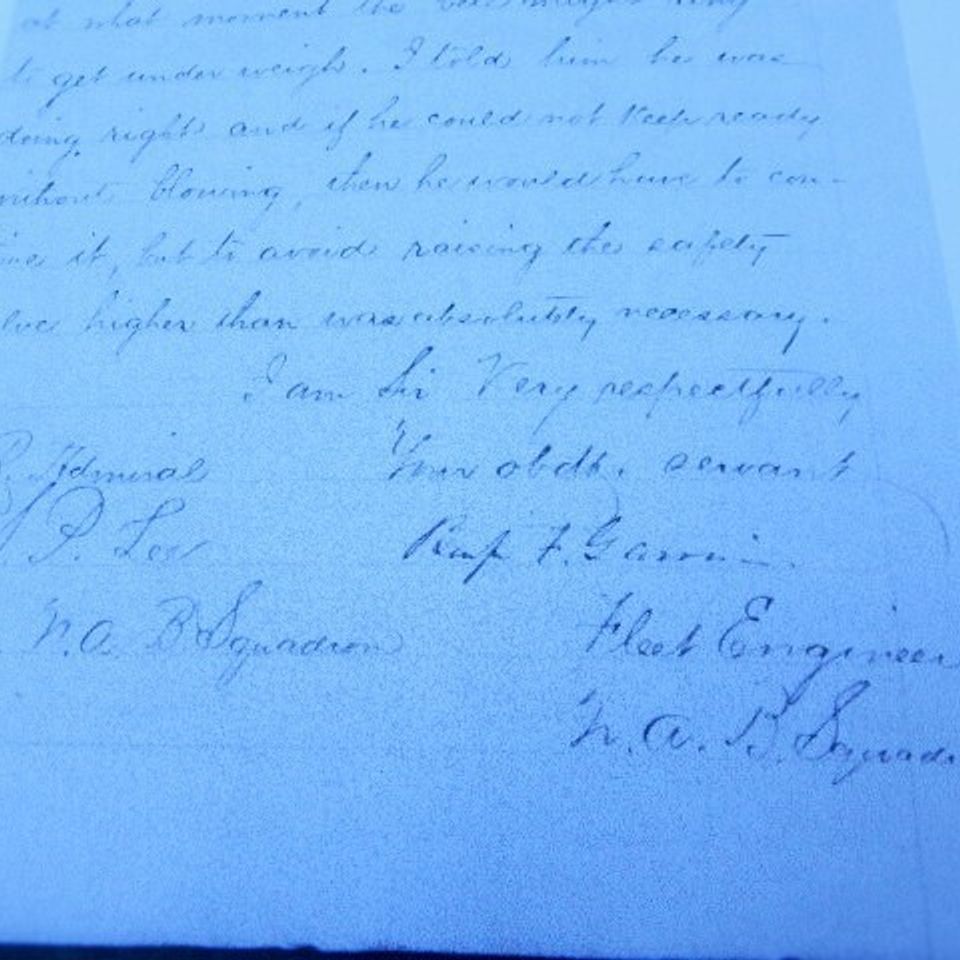 at what moment the bell might ring
to get under weigh. I told him he was
doing right and if he could not keep ready
without blowing, then he would have to con-
it, but to avoid raising the safety
higher than was absolutely necessary.
I am Sir Very respectfully
R. Admiral Your obdt. servant
P. Lee Benj F. Garvin
N. A. B Squadron Fleet Engineer
N. A. B. Squad